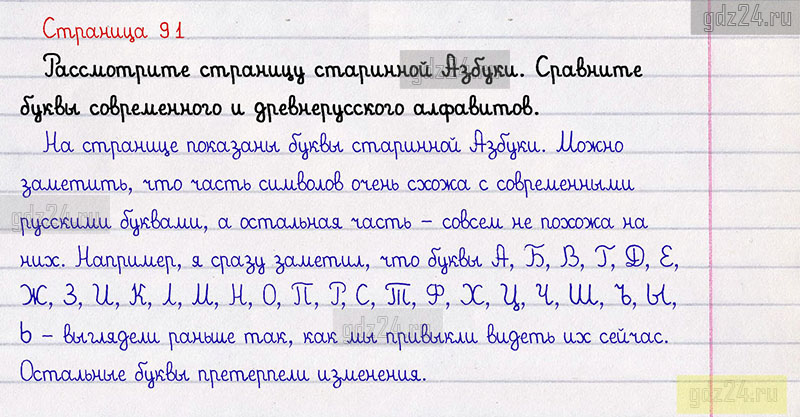 gdz24.ru
Страница 91
Рассмотрите страницу старинной Азбуки. Сравните
gdz24.ru
буквы современного и древнерусского алфавитов.
На странице показаны буквы старинной Азбуки. Можно
заметить, что часть символов очень схожа с современными
gdz24.ru
русскими буквами, а остальная часть – совсем не похожа на
них. Например, я сразу заметил, что буквы А, Б, В, Г, Д, Е,
Ж, З, И, К, Л, М, Н, О, П, Р, С, Т, Ф, Х, Ц, Ч, Ш, Ъ, Ы,
gdz24.ru
Ь – выглядели раньше так, как мы привыкли видеть их сейчас.
Остальные буквы претерпели изменения.
gdz24.ru